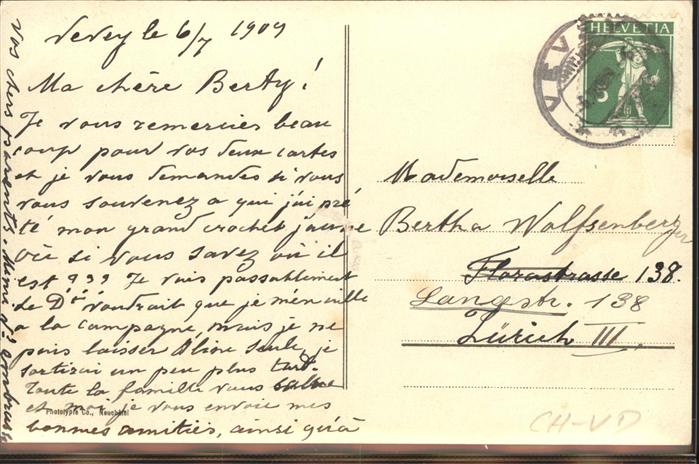 Vevey le 6/7 1909
Ma chère Berty!
Je vous remercies beau
coup pour vos deux cartes
et je vous demandes si vous
vous souvenez a qui j'ai pré
té mon grand crochet jaune
où si vous savez où il
est ??? Je vais passablement
le Dr. voudrait que je m'en aille
a la campagne, mais je ne
puis laisser seule, je
sortirai un peu plus tard.
Toute la famille vous salue
et moi je vous envoie mes
bonnes amitiés, ainsi qu'à
vos chers parents.
Photolypie Co., Neuchâtel
HELVETIA
5
VEVEY
Mademoiselle
Bertha Wolfsenberger
Florastrasse 138.
Langstr. 138
Zürich III.
CH-VD